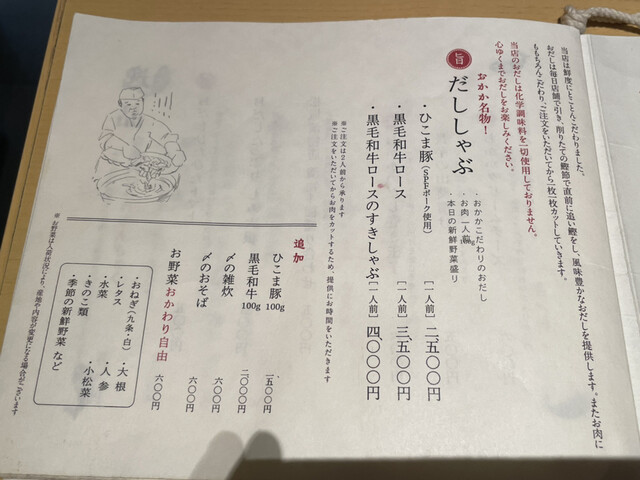 当店は鮮度にとことんこだわりました。
おだしは毎日店舗で引き、削りたての鰹節で直前に追い鰹をし、風味豊かなおだしを提供します。またお肉に
ももちろんこだわり、ご注文をいただいてから一枚一枚カットしていきます。
当店のおだしは化学調味料を一切使用しておりません。
心ゆくまでおだしをお楽しみください。
おかか名物！
旨 だししゃぶ
・おかかこだわりのおだし
・お肉一人前100g
・本日の新鮮野菜盛り
・ひこま豚（SPFポーク使用） ［一人前］ 二、五〇〇円
・黒毛和牛ロース ［一人前］ 三、五〇〇円
・黒毛和牛ロースのすきしゃぶ ［一人前］ 四、〇〇〇円
※ご注文は2人前から承ります
※ご注文をいただいてからお肉をカットするため、提供にお時間をいただきます
追加
ひこま豚 100g 一、五〇〇円
黒毛和牛 100g 二、〇〇〇円
〆の雑炊 六〇〇円
〆のおそば 六〇〇円
お野菜おかわり自由 六〇〇円
・おねぎ（九条・白） ・大根
・レタス ・人参
・水菜 ・小松菜
・きのこ類
・季節の新鮮野菜 など
※お野菜は入荷状況により、産地や内容が変更になる場合がございます